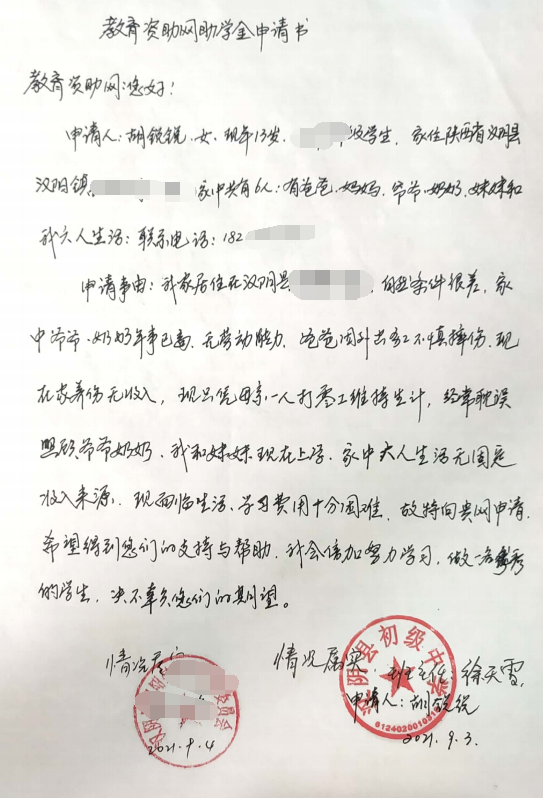 教育资助网助学金申请书
教育资助网:您好!
申请人:胡锐锐、女、现年13岁、级学生、家住陕西省汉阴县
汉阴镇 家中共有6人:有爸爸、妈妈、爷爷、奶奶、妹妹和
我六人生活:联系电话:182
申请事由:我家居住在汉阴县 ,自然条件很差,家
中爷爷、奶奶年事已高、无劳动能力、爸爸因外出务工不慎摔伤、现
在家养伤无收入,现只凭母亲一人打零工维持生计,经常耽误
照顾爷爷奶奶、我和妹妹现在上学、家中六人生活无固定
收入来源、现面临生活、学习费用十分困难、故特向贵网申请、
希望得到您们的支持与帮助、我会倍加努力学习,做一名优秀
的学生、决不辜负您们的期望。
情况属
情况属实
班主任:徐天雯
申请人:胡锐锐
阴县初级中学
6124020010
委员会
2021.9.4
2021.9.3.